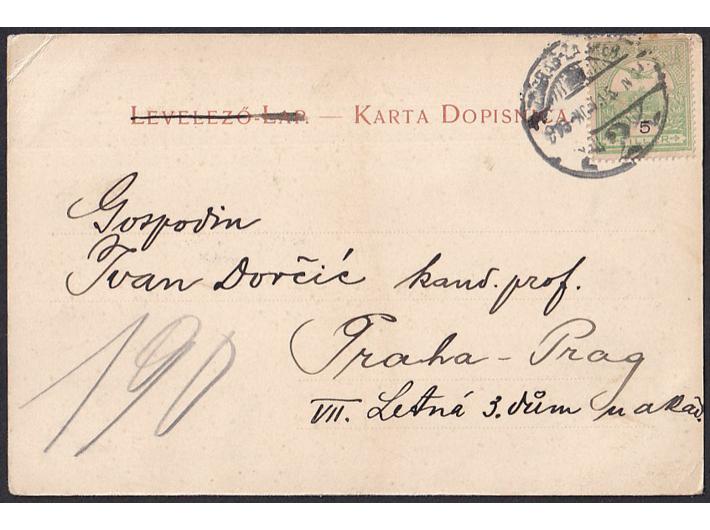 LEVELEZŐ-LAP. — KARTA DOPISNICA.
5
Gospodin
Ivan Dorčić kand. prof.
Praha - Prag
VII. Letná 3. dům u akad.
190